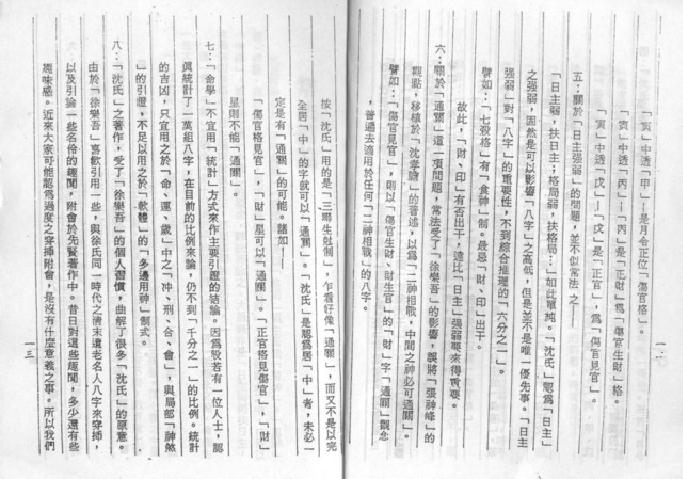 「寅」中透「甲」—是月令正位「傷官格」。
「寅」中透「丙」—「丙」是「正財」爲「傷官生財」格。
「寅」中透「戊」—「戊」是「正官」，爲「傷官見官」。
五：關於「日主強弱」的問題，並不似常法 之—
「日主弱，扶日主；格局弱，扶格局…」如此單純。「沈氏」認爲「日主」
之強弱，固然是可以影響「八字」之高低，但是並不是唯一優先事。「日主
強弱」對「八字」的重要性，不到綜合推理的「六分之一」。
譬如：「七殺格」有「食神」制。最忌「財、印」出干。
故此，「財、印」有否出干，遠比「日主」強弱要來得重要。
六：關於「通關」這一項問題，常法受了「徐樂吾」的影響，誤將「張神峰」的
觀點，移植於「沈孝瞻」的著述，以爲「二神相戰，中間之神必可通關」。
譬如：「傷官見官」，則以「傷官生財、財生官」的「財」字「通關」觀念
，普遍去適用於任何「二神相戰」的八字。
按「沈氏」用的是「三關生尅制」，乍看好像「通關」，而又不是以完
全居「中」的字就可以「通關」。「沈氏」是認爲居「中」者，未必一
定是有「通關」的可能。諸如—
「傷官格見官」，「財」星可以「通關」。「正官格見傷官」，「財」
星則不能「通關」。
七：「命學」不宜用「統計」方式來作主要引證的結論。因爲設若有一位人士，認
眞統計了一萬組八字，在目前的比例來論，仍不到「千分之一」的比例。統計
的吉凶，只宜用之於「命、運、歲」中之「冲、刑、合、會」，與局部「神煞
」的引證，不足以用之於「軟體」的「多邊用神」制式。
八：「沈氏」之著作，受了「徐樂吾」的個人習慣，曲解了很多「沈氏」的原意。
由於「徐樂吾」喜歡引用一些，與徐氏同一時代之清末遺老名人八字來穿揷，
以及引論一些名伶的趣聞，附會於先賢著作中。昔日對這些趣聞，多少還有些
趣味感。近來大家可能認爲過度之穿揷附會，是沒有什麼意義之事。所以我們
一三